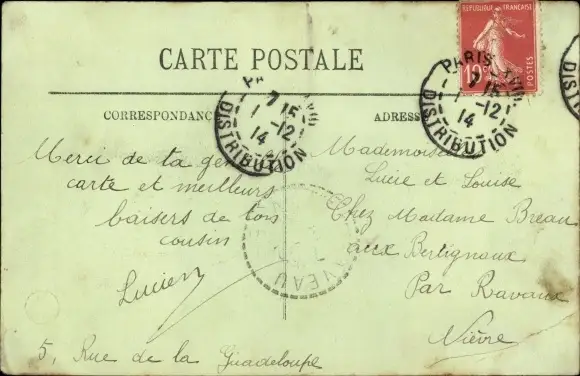 CARTE POSTALE
RÉPUBLIQUE FRANÇAISE
10c
POSTES
CORRESPONDANC
ADRESS
PARIS XVIII
7 15
1 - 12
14
DISTRIBUTION
7 15
1 - 12
14
DISTRIBUTION
Merci de ta
carte et meilleurs
baisers de ton
cousin
Lucien
5, Rue de la Guadeloupe
Mademoise
Lucie et Louise
Chez Madame Breau
aux Bertignaux
Par Ravaux
Nièvre
VEAU